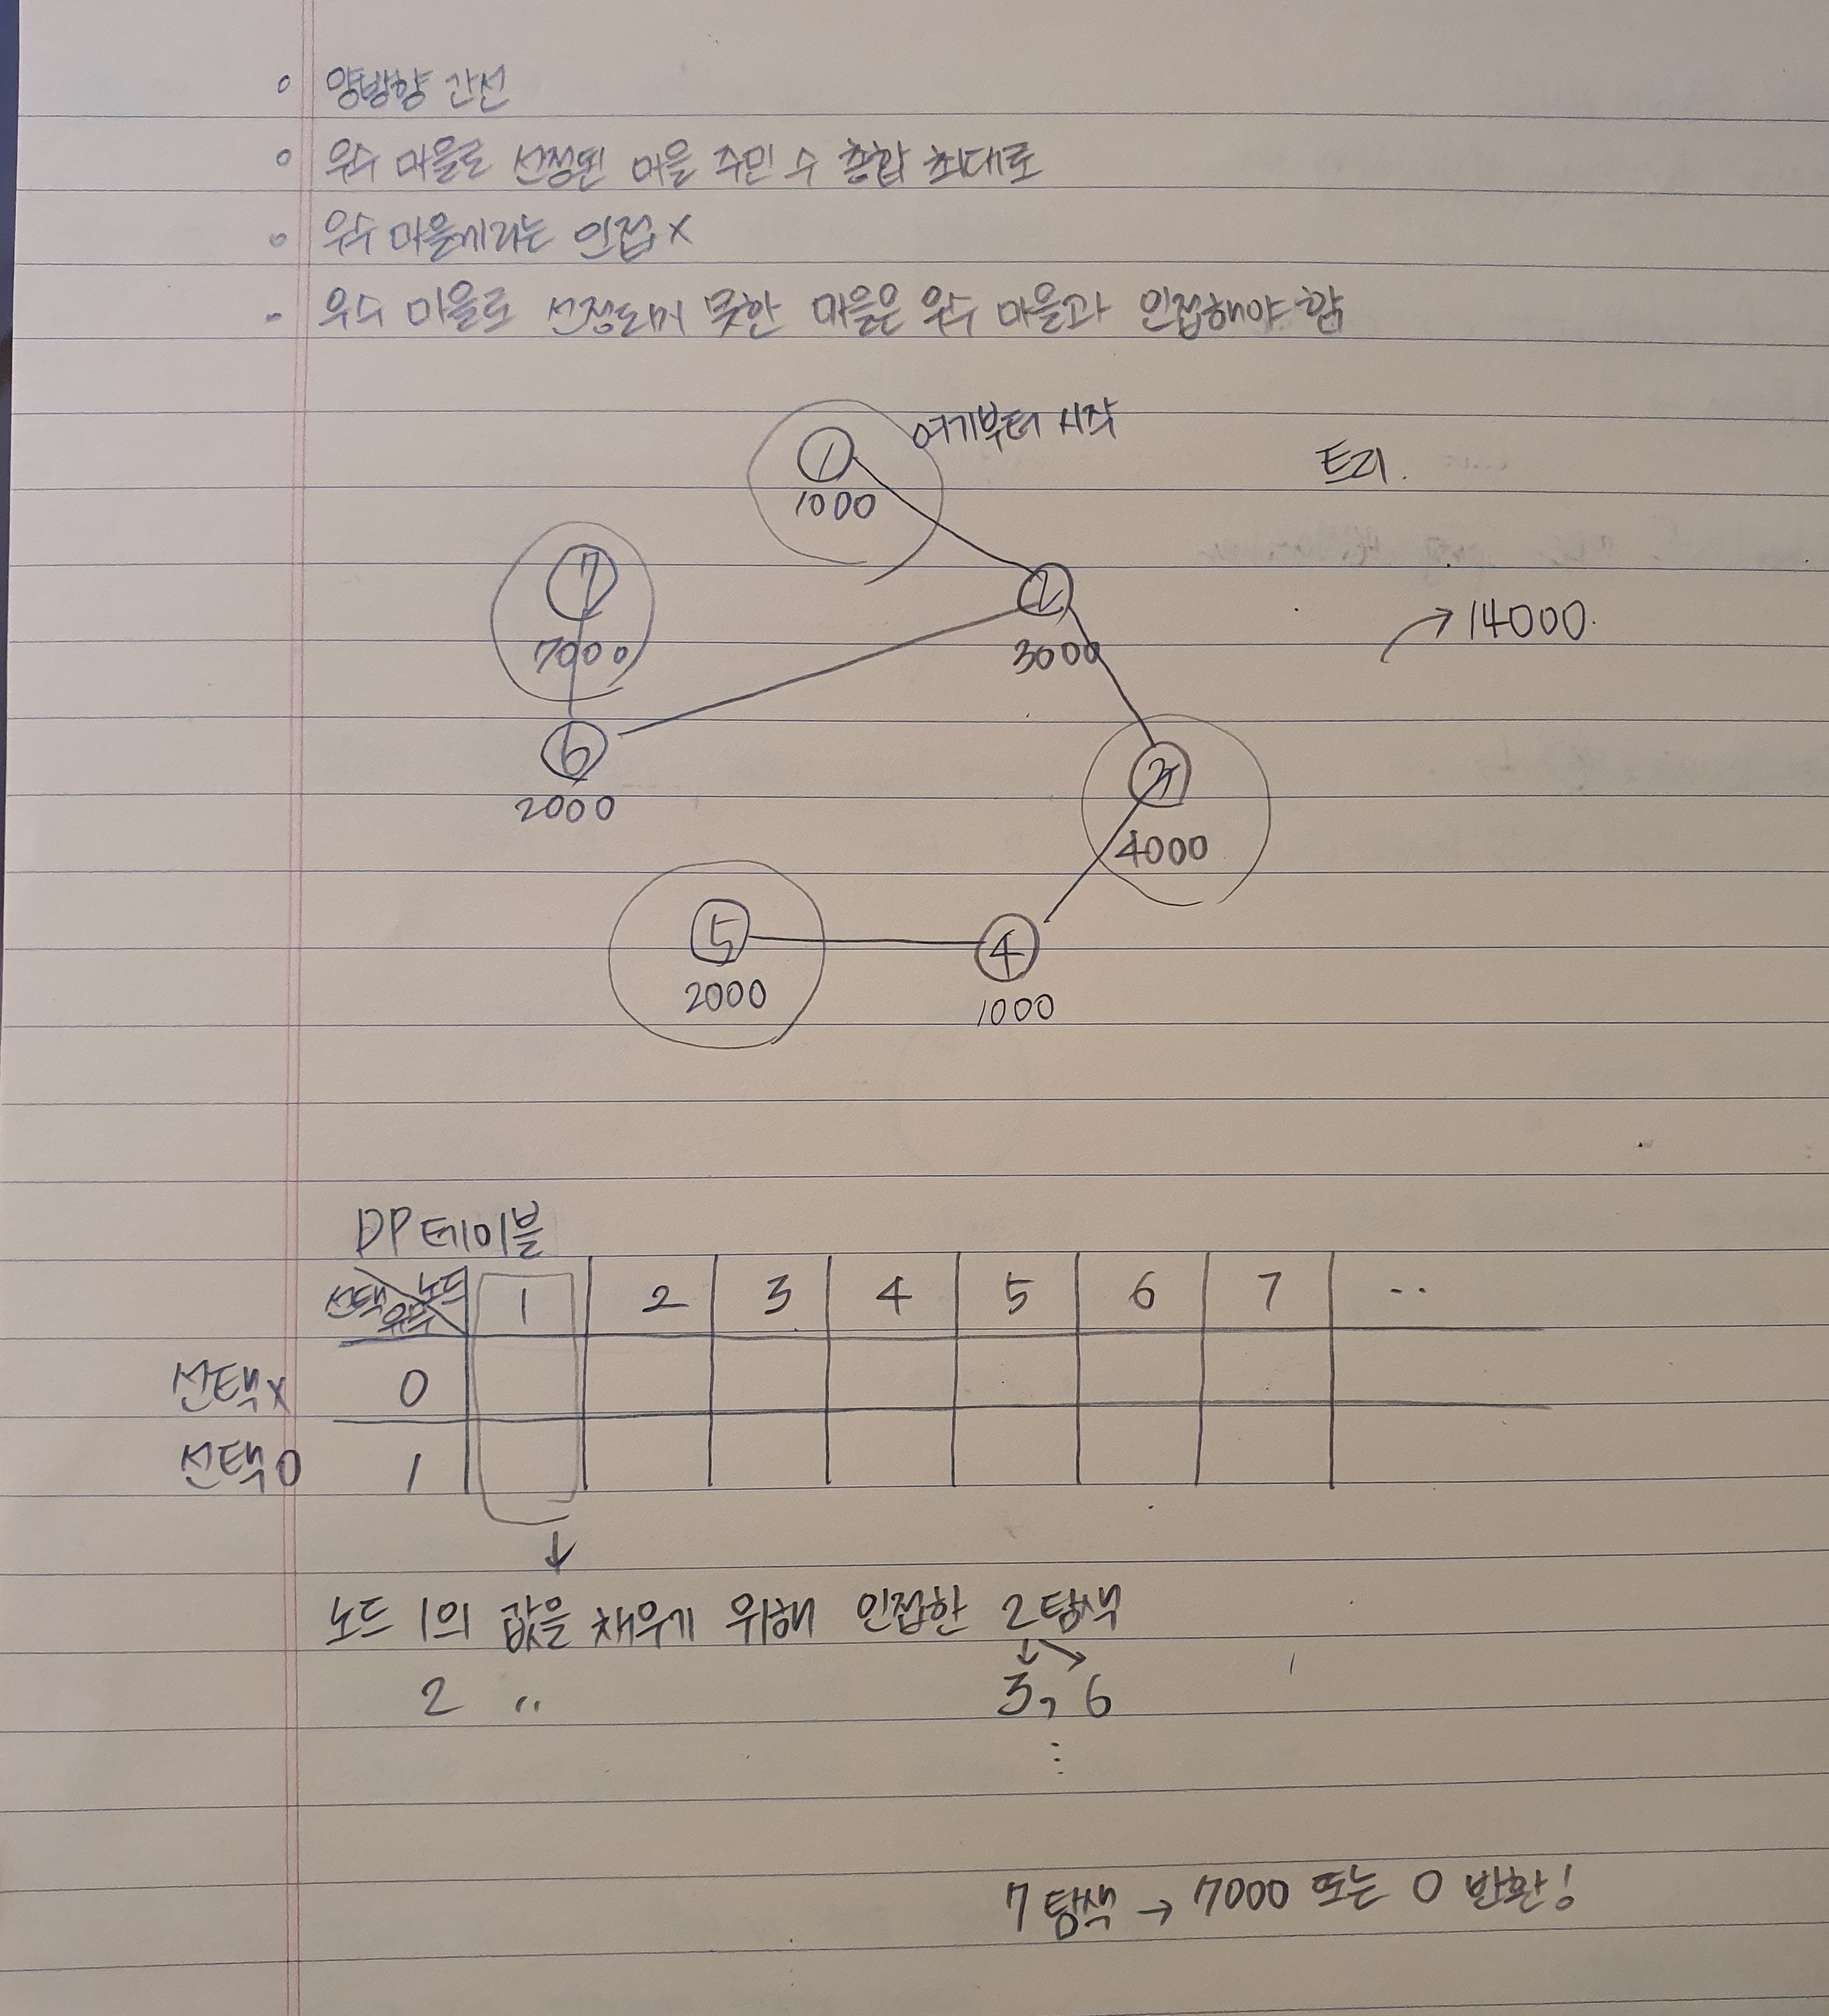 양방향 간선
우수 마을로 선정된 마을 주민 수 총합 최대로
우수 마을끼리는 인접 x
우수 마을로 선정되지 못한 마을은 우수 마을과 인접해야 함
1 여기부터 시작
트리.
1000
7
2
7000
3000
→ 14000.
6
3
2000
4000
5
4
2000
1000
DP 테이블
선택 유무 노드 1 2 3 4 5 6 7 ..
선택x 0
선택O 1
↓
노드 1의 값을 채우기 위해 인접한 2 탐색
2 〃 3, 6
⋮
7 탐색 → 7000 또는 0 반환!